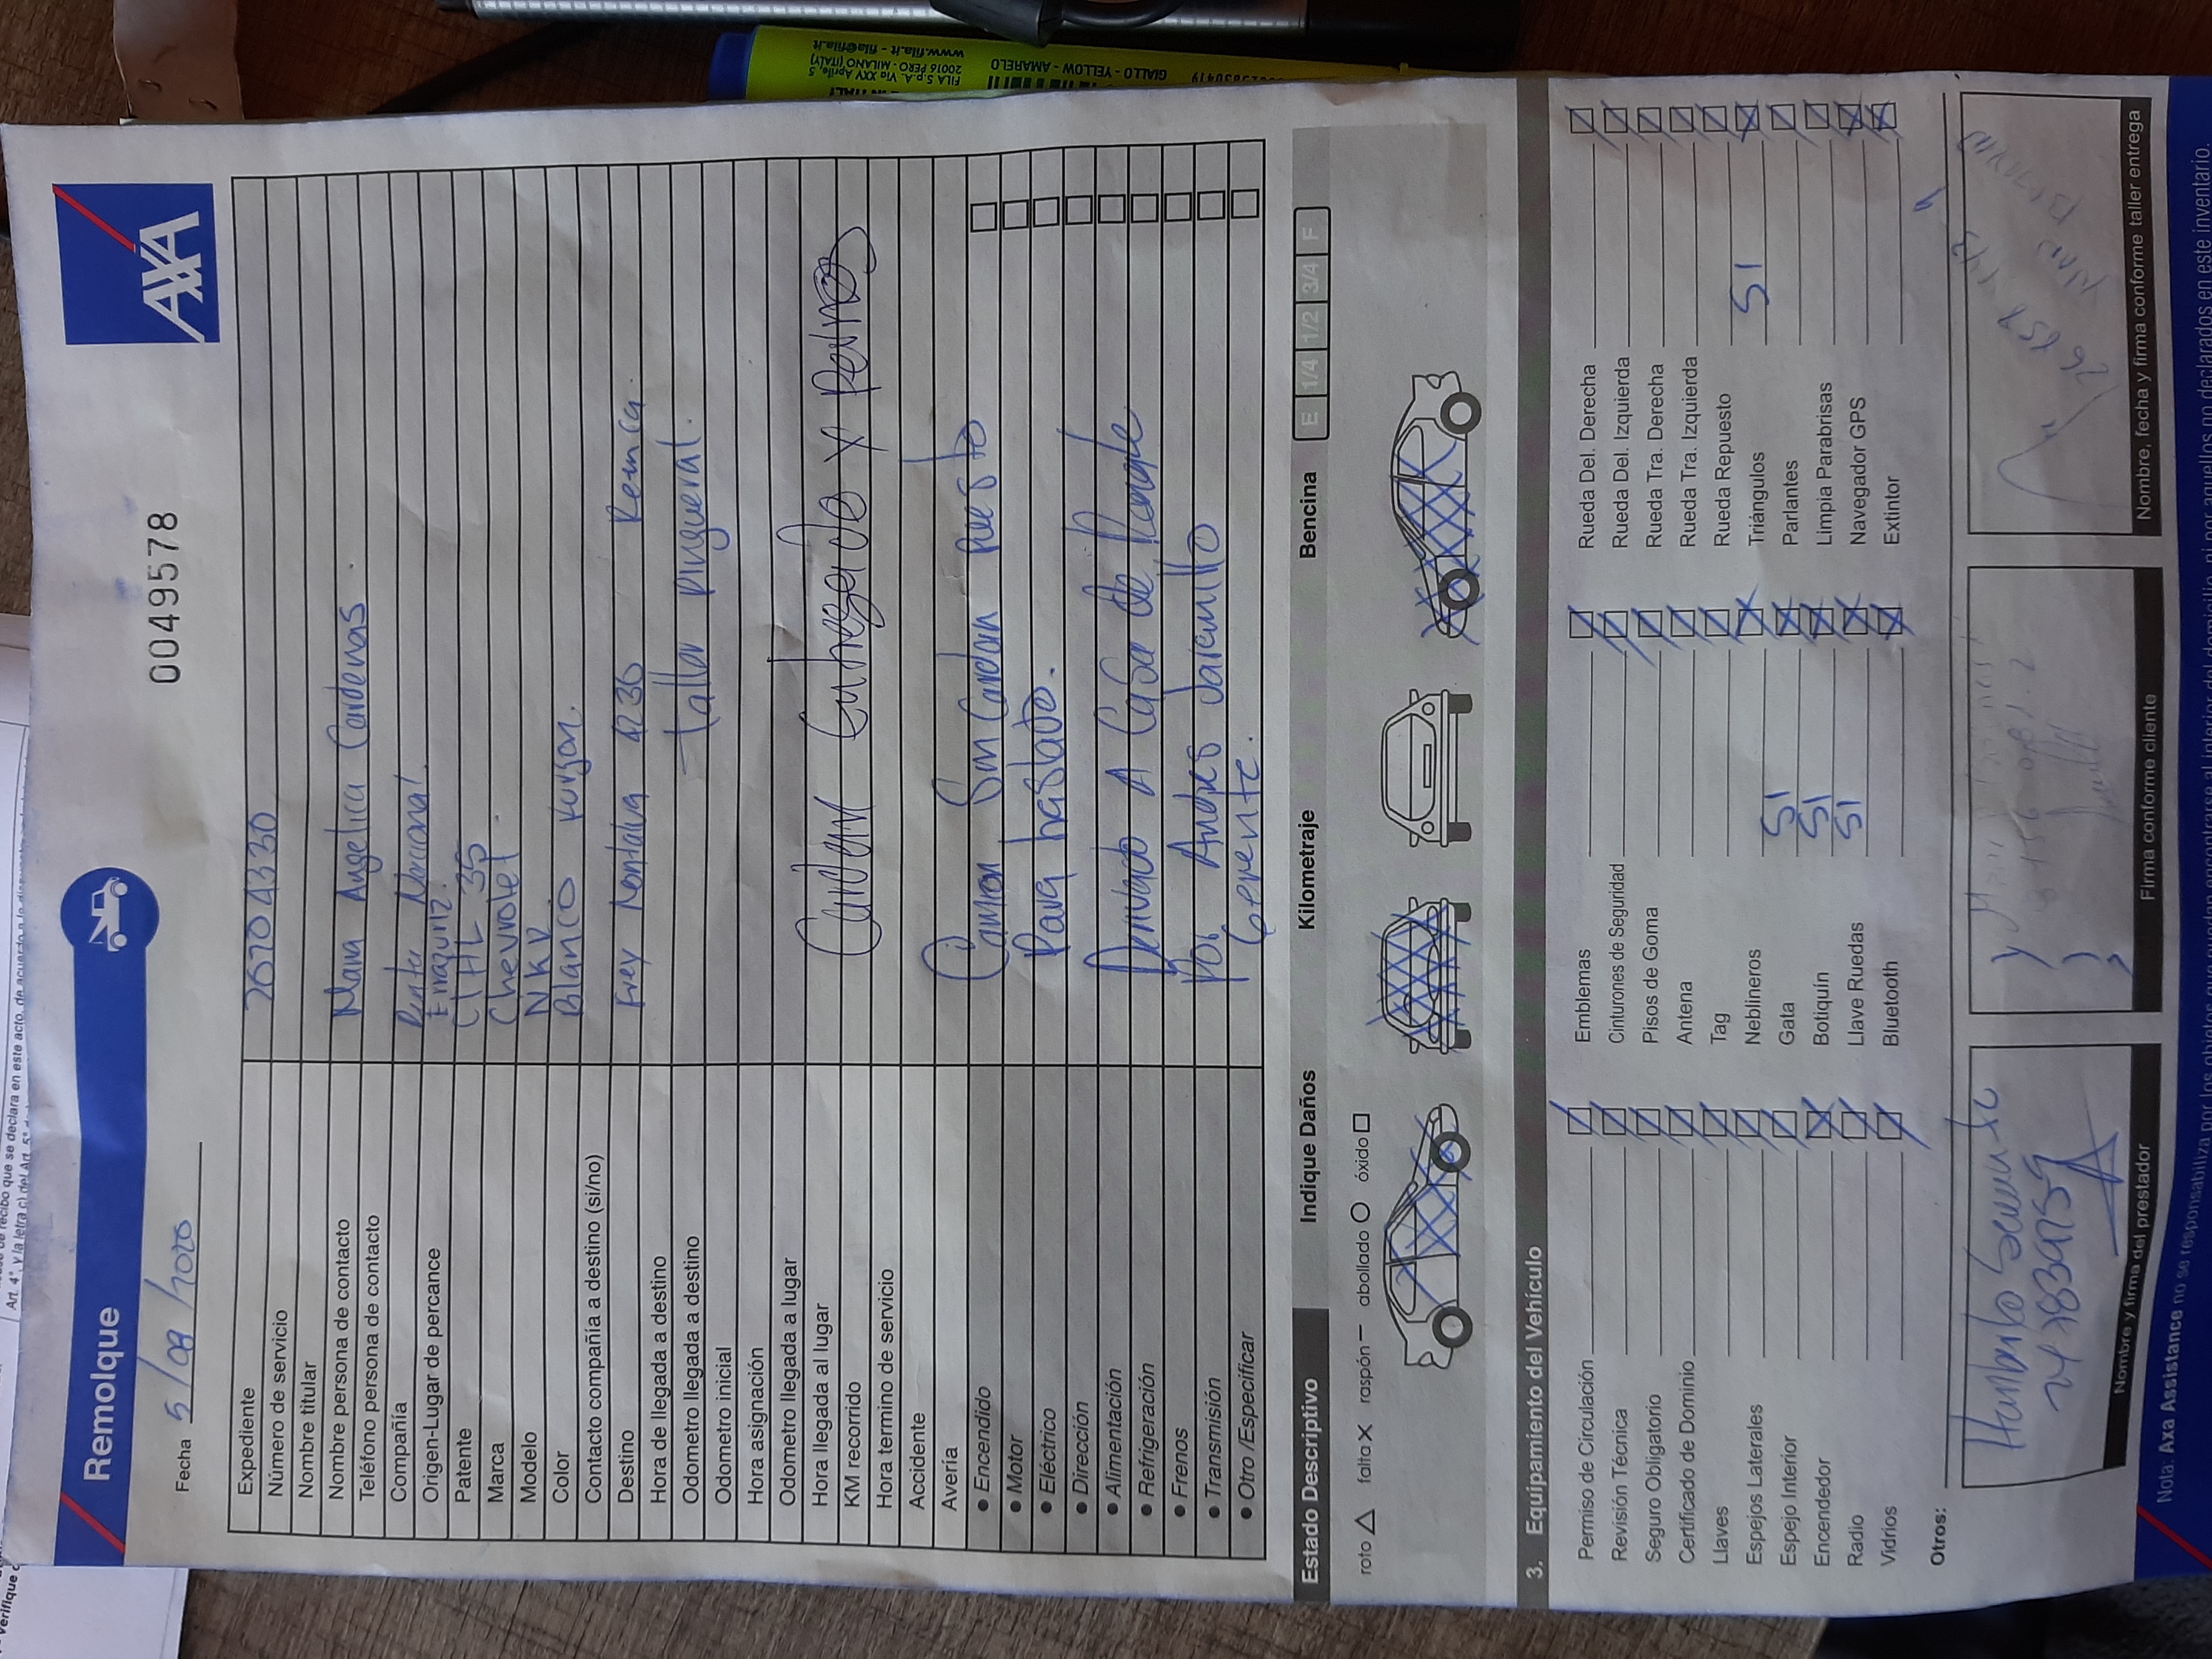 Remolque
AXA
0049578
Fecha 5/09/2020
Expediente 26704330
Número de servicio
Nombre titular
Nombre persona de contacto Maria Angelica Cardenas
Teléfono persona de contacto
Compañía Renta Nacional
Origen-Lugar de percance Errazuriz
Patente CTHL 35
Marca Chevrolet
Modelo NKR
Color Blanco furgon
Contacto compañía a destino (si/no)
Destino Frey Montalva 4236 Renca.
Hora de llegada a destino
Odometro llegada a destino taller pingueral.
Odometro inicial
Hora asignación
Odometro llegada a lugar
Hora llegada al lugar Cardan Entregado x Pernos
KM recorrido
Hora termino de servicio
Accidente
Avería
• Encendido Camion Sin Cardan Puesto
• Motor
• Eléctrico Para traslado.
• Dirección
• Alimentación Derivado A Casa de
• Refrigeración
• Frenos
• Transmisión Por Andres Jaramillo
• Otro /Especificar Gerente.
Estado Descriptivo Indique Daños Kilometraje Bencina E 1/4 1/2 3/4 F
roto falta X raspón abollado óxido
3. Equipamiento del Vehículo
Permiso de Circulación Emblemas Rueda Del. Derecha
Revisión Técnica Cinturones de Seguridad Rueda Del. Izquierda
Seguro Obligatorio Pisos de Goma Rueda Tra. Derecha
Certificado de Dominio Antena Rueda Tra. Izquierda
Llaves Tag Rueda Repuesto
Espejos Laterales Neblineros Triángulos SI
Espejo Interior Gata SI Parlantes
Encendedor Botiquín SI Limpia Parabrisas
Radio Llave Ruedas SI Navegador GPS
Vidrios Bluetooth Extintor
Otros:
Humberto
Nombre y firma del prestador
Firma conforme cliente
Nombre, fecha y firma conforme taller entrega
Nota: Axa Assistance no se responsabiliza por los objetos que puedan encontrarse al interior del domicilio, ni por aquellos no declarados en este inventario.
FILA S.p.A. Via XXV Aprile, 5
20016 PERO - MILANO (ITALY)
www.fila.it - fila@fila.it
GIALLO - YELLOW - AMARELO